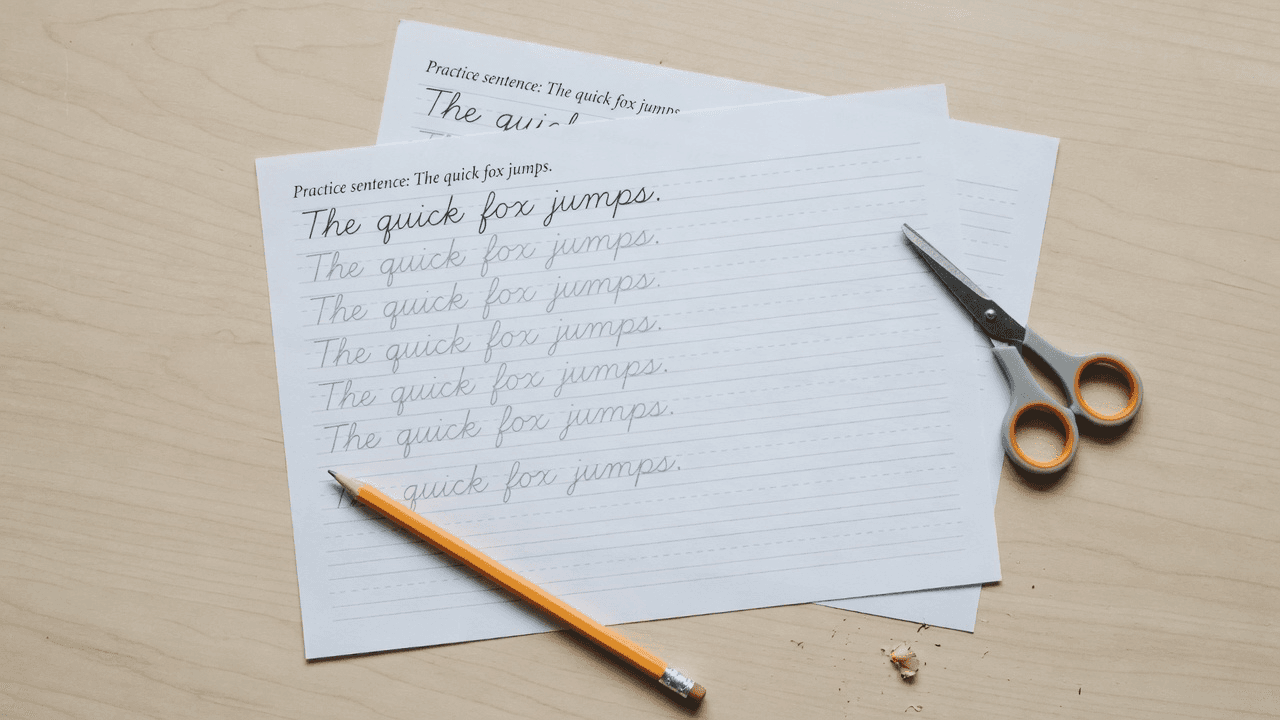 Practice sentence: The quick fox jumps.
The quick
Practice sentence: The quick fox jumps.
The quick fox jumps.
The quick fox jumps.
The quick fox jumps.
The quick fox jumps.
The quick fox jumps.
The quick fox jumps.
quick fox jumps.